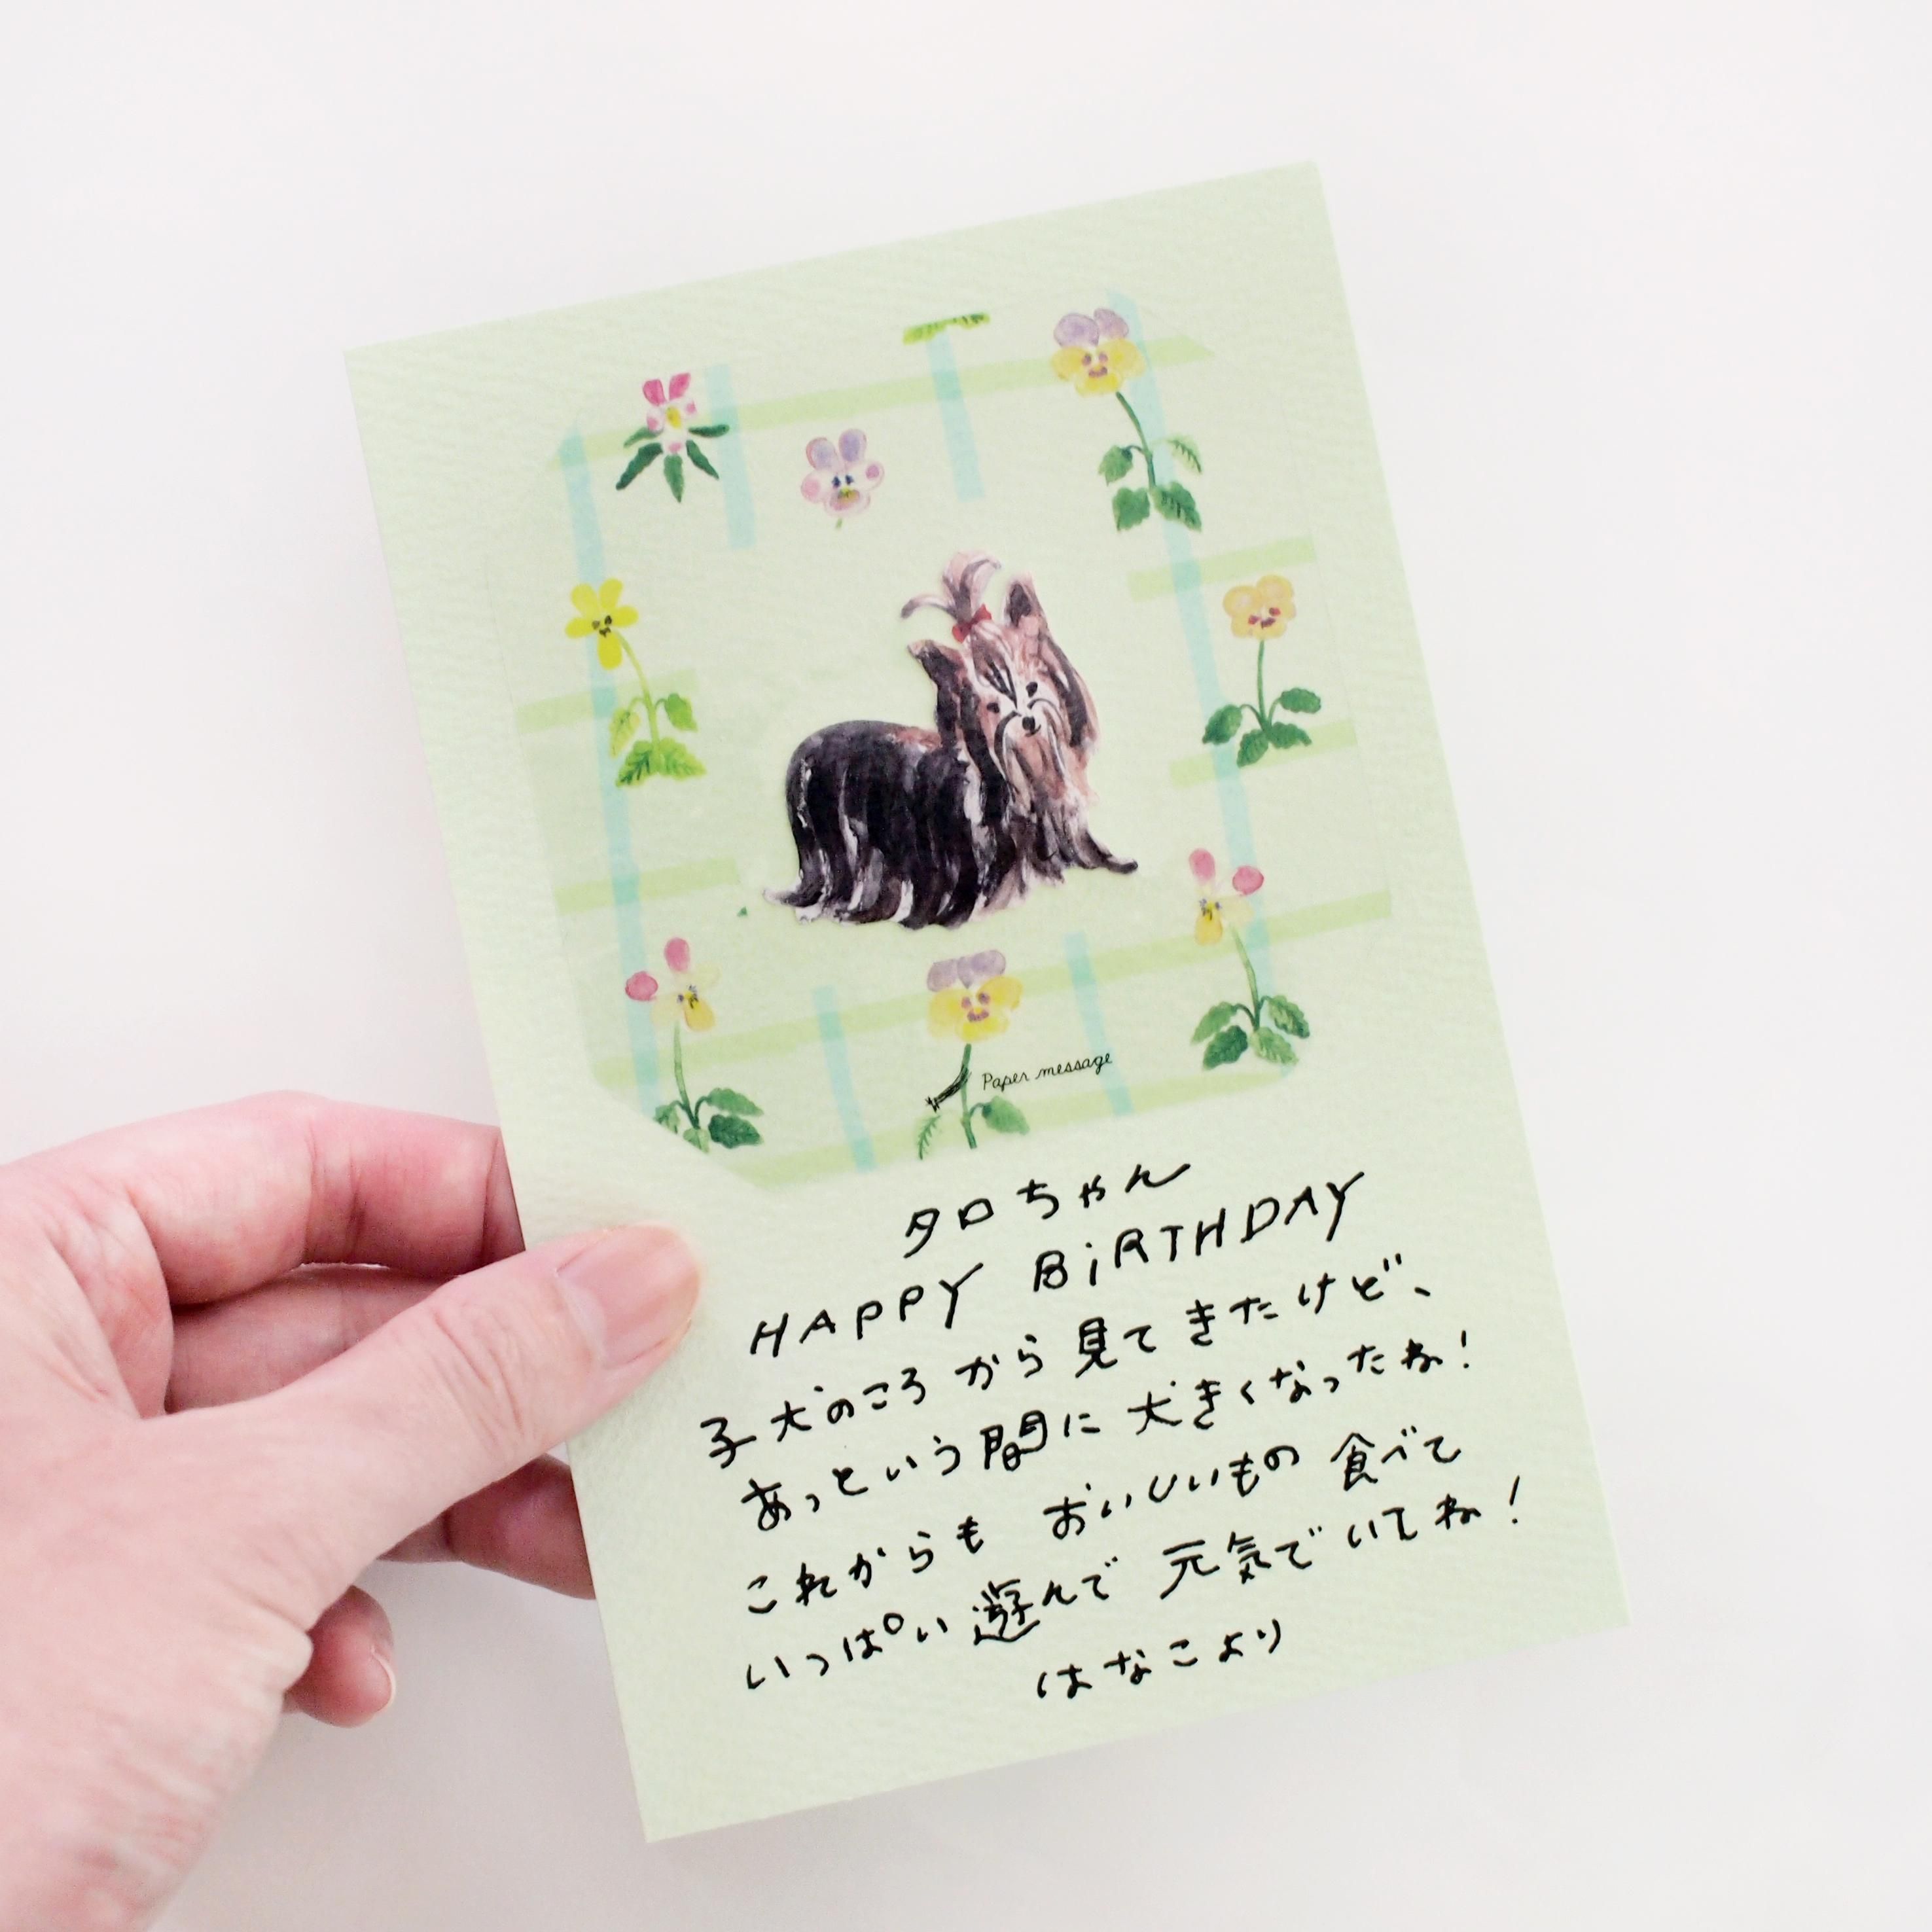 Paper message
タロちゃん
HAPPY BiRTHDAY
子犬のころから見てきたけど、
あっという間に大きくなったね!
これからも おいしいもの 食べて
いっぱい遊んで 元気でいてね!
はなこより